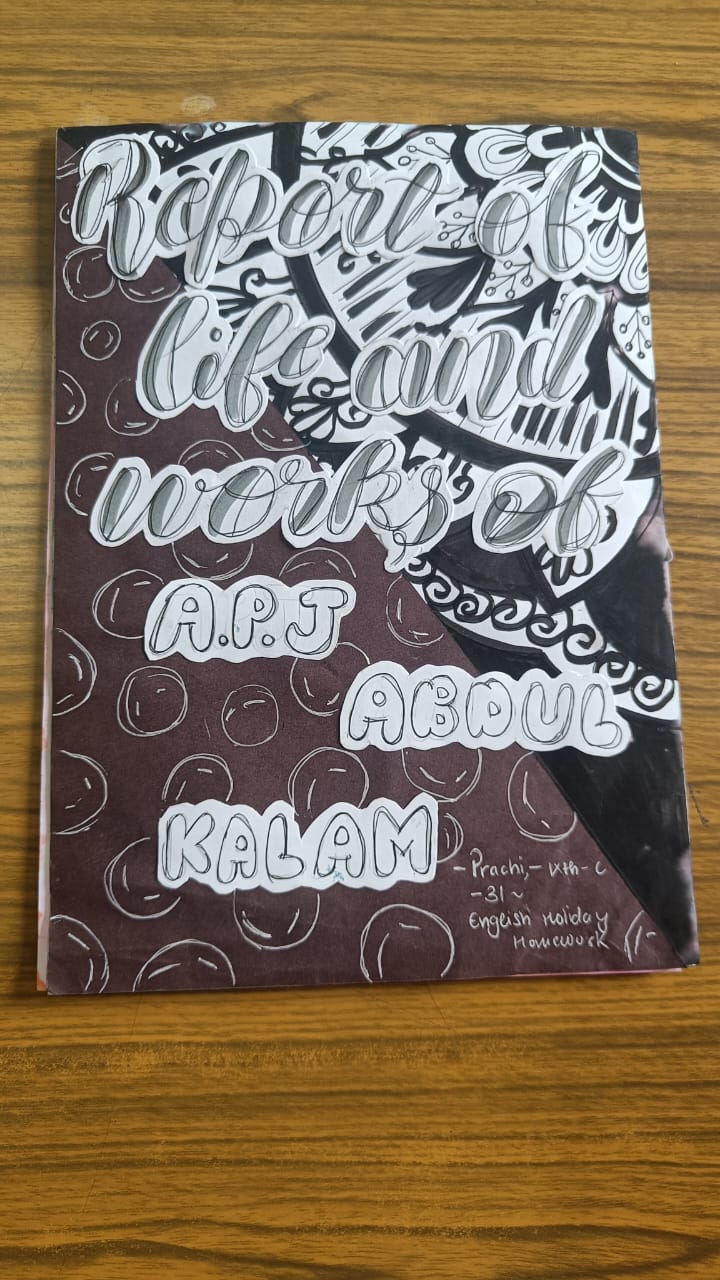 Report of
life and
works of
A.P.J
ABDUL
KALAM
- Prachi, - IXth - C
- 31 ~
English Holiday
Homework